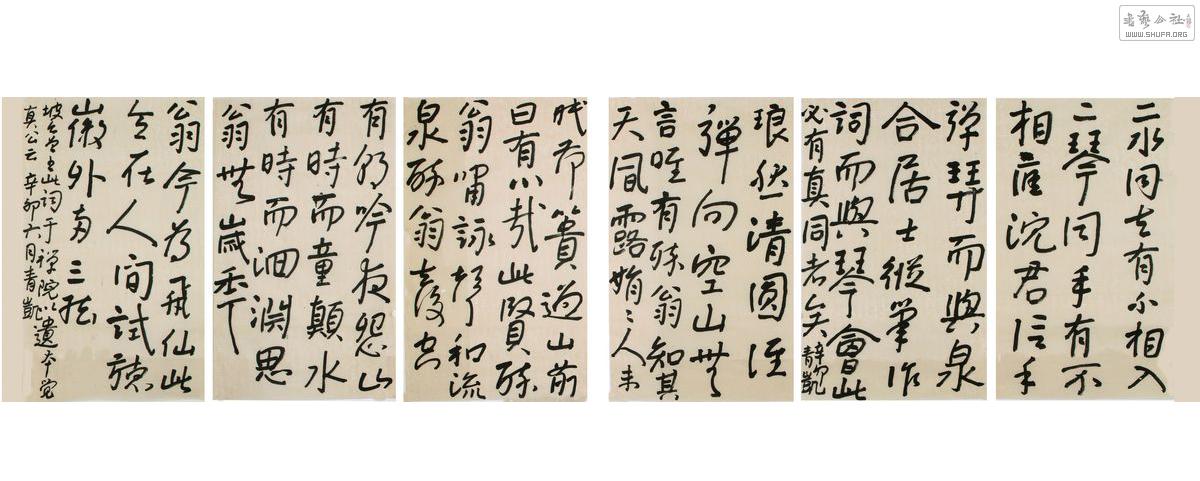 書藝公社
WWW.SHUFA.ORG
二水同器有不相入
二琴同手有不
相應沈君信手
弹琴而與泉
合居士縱筆作
詞而與琴會此
必有真同者矣 辛卯青凱
琅然清圓誰
彈向空山無
言唯有醉翁知其
天風露娟〻人未
眠荷簣過山前
曰有心哉此賢醉
翁嘯詠聲和流
泉醉翁去後空
有朝吟夜怨山
有時而童顛水
有時而洄淵思
翁無歲年
翁今為飛仙此
意在人間試聽
徽外兩三絃
坡公書此詞于禅院以遺本覺
真公云 辛卯六月青凱